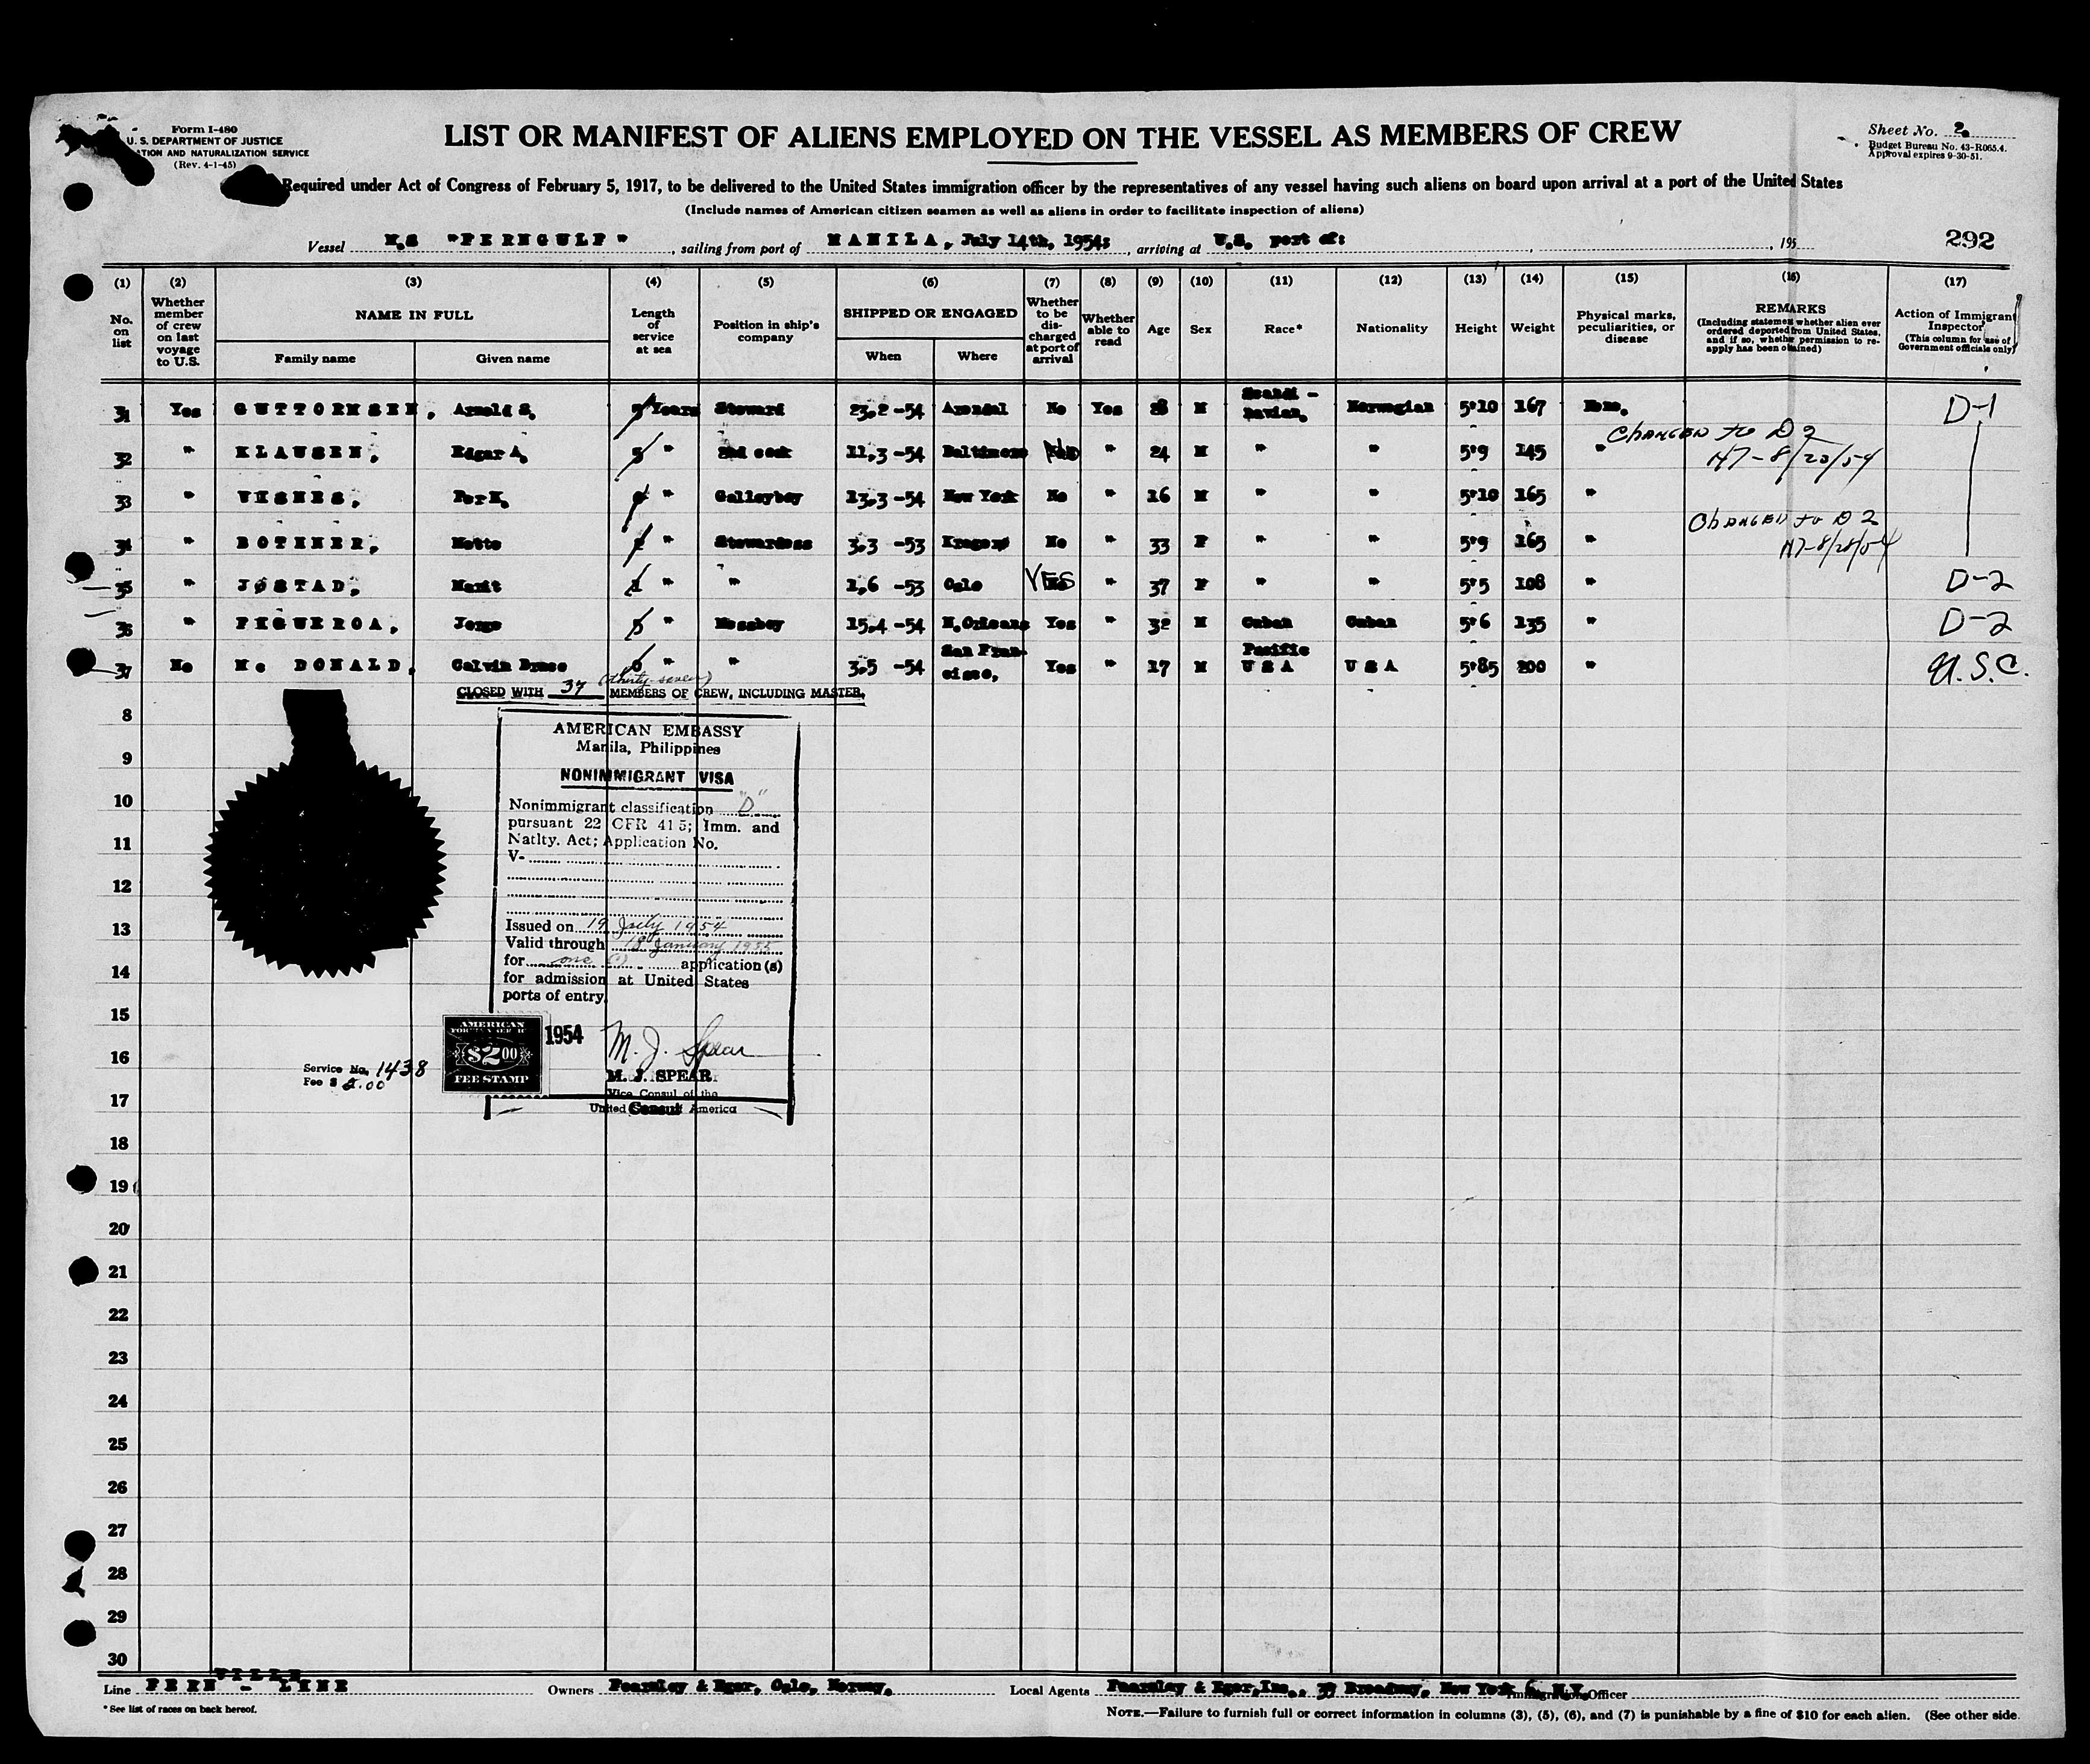 Form I-480
U. S. DEPARTMENT OF JUSTICE
ATION AND NATURALIZATION SERVICE
(Rev. 4-1-45)
LIST OR MANIFEST OF ALIENS EMPLOYED ON THE VESSEL AS MEMBERS OF CREW
Sheet No. 2.
Budget Bureau No. 43-R065.4.
Approval expires 9-30-51.
Required under Act of Congress of February 5, 1917, to be delivered to the United States immigration officer by the representatives of any vessel having such aliens on board upon arrival at a port of the United States
(Include names of American citizen seamen as well as aliens in order to facilitate inspection of aliens)
Vessel M.S "FERNGULF", sailing from port of MANILA, July 14th, 1954:, arriving at U.S. port of:, 195
292
(1) (2) (3) (4) (5) (6) (7) (8) (9) (10) (11) (12) (13) (14) (15) (16) (17)
No. on list
Whether member of crew on last voyage to U.S.
NAME IN FULL
Family name Given name
Length of service at sea
Position in ship's company
SHIPPED OR ENGAGED
When Where
Whether to be discharged at port of arrival
Whether able to read
Age
Sex
Race*
Nationality
Height
Weight
Physical marks, peculiarities, or disease
REMARKS
(Including statement whether alien ever ordered deported from United States, and if so, whether permission to reapply has been obtained)
Action of Immigrant Inspector
(This column for use of Government officials only)
31 Yes GUTTORMSEN, Arnold S. 5 Years Steward 23.2-54 Arendal No Yes 28 M Scandi-navian. Norwegian 5'10 167 None. D-1
32 " KLAUSEN, Edgar A. 5 " 2nd cook 11.3-54 Baltimore " 24 M " " 5'9 145 " Changed to D 2
H7-8/23/54
33 " VISNES, Per K. " Galleyboy 13.3-54 New York No " 16 M " " 5'10 165 "
34 " BOTHNER, Mette " Stewardess 3.3-53 Kragerø No " 33 F " " 5'9 165 " Changed to D 2
H7-8/28/54
35 " JØSTAD, Marit 1 " " 1.6-53 Oslo YES " 37 F " " 5'5 108 " D-2
36 " FIGUEROA, Jorge 5 " Messboy 15.4-54 N.Orleans Yes " 32 M Cuban Cuban 5'6 135 " D-2
37 No Mc DONALD, Calvin Bruce 0 " " 3.5-54 San Francisco. Yes " 17 M Pacific USA USA 5'85 200 " U.S.C.
CLOSED WITH 37 (thirty-seven) MEMBERS OF CREW, INCLUDING MASTER.
AMERICAN EMBASSY
Manila, Philippines
NONIMMIGRANT VISA
Nonimmigrant classification "D"
pursuant 22 CFR 415; Imm. and
Natlty. Act; Application No.
V-
Issued on 19 July 1954
Valid through 18 January 1955
for one (1) application(s)
for admission at United States
ports of entry.
AMERICAN
FOREIGN SERVICE
$2.00
FEE STAMP
1954
M. J. Spear
M. J. SPEAR
Vice Consul of the
United America
Consul
Service No. 1438
Fee $ 2.00
8
9
10
11
12
13
14
15
16
17
18
19
20
21
22
23
24
25
26
27
28
29
30
Line FERN - VILLE LINE
Owners Fearnley & Eger, Oslo, Norway.
Local Agents Fearnley & Eger, Inc., 39 Broadway, New York 6, N.Y.
Immigration Officer
*See list of races on back hereof.
NOTE.—Failure to furnish full or correct information in columns (3), (5), (6), and (7) is punishable by a fine of $10 for each alien. (See other side.